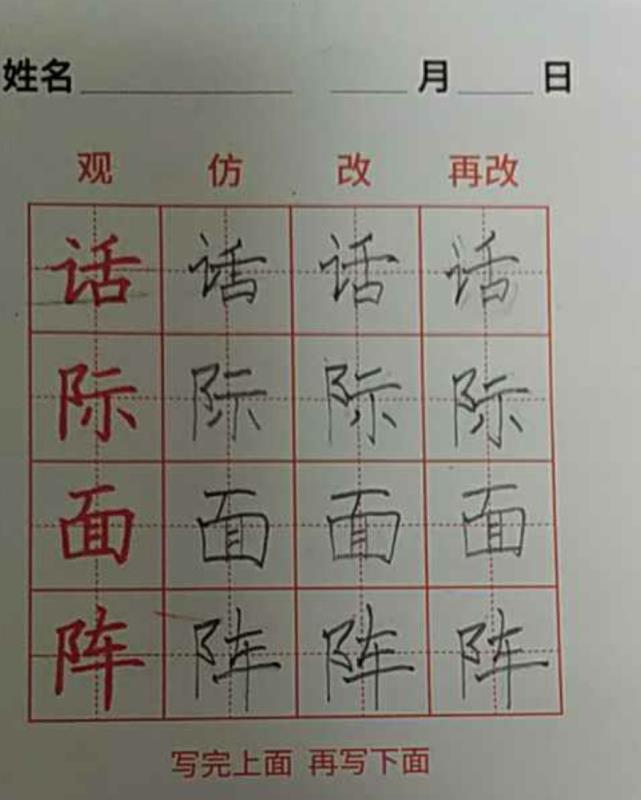 姓名 月 日
观 仿 改 再改
话 话 话 话
际 际 际 际
面 面 面 面
阵 阵 阵 阵
写完上面 再写下面